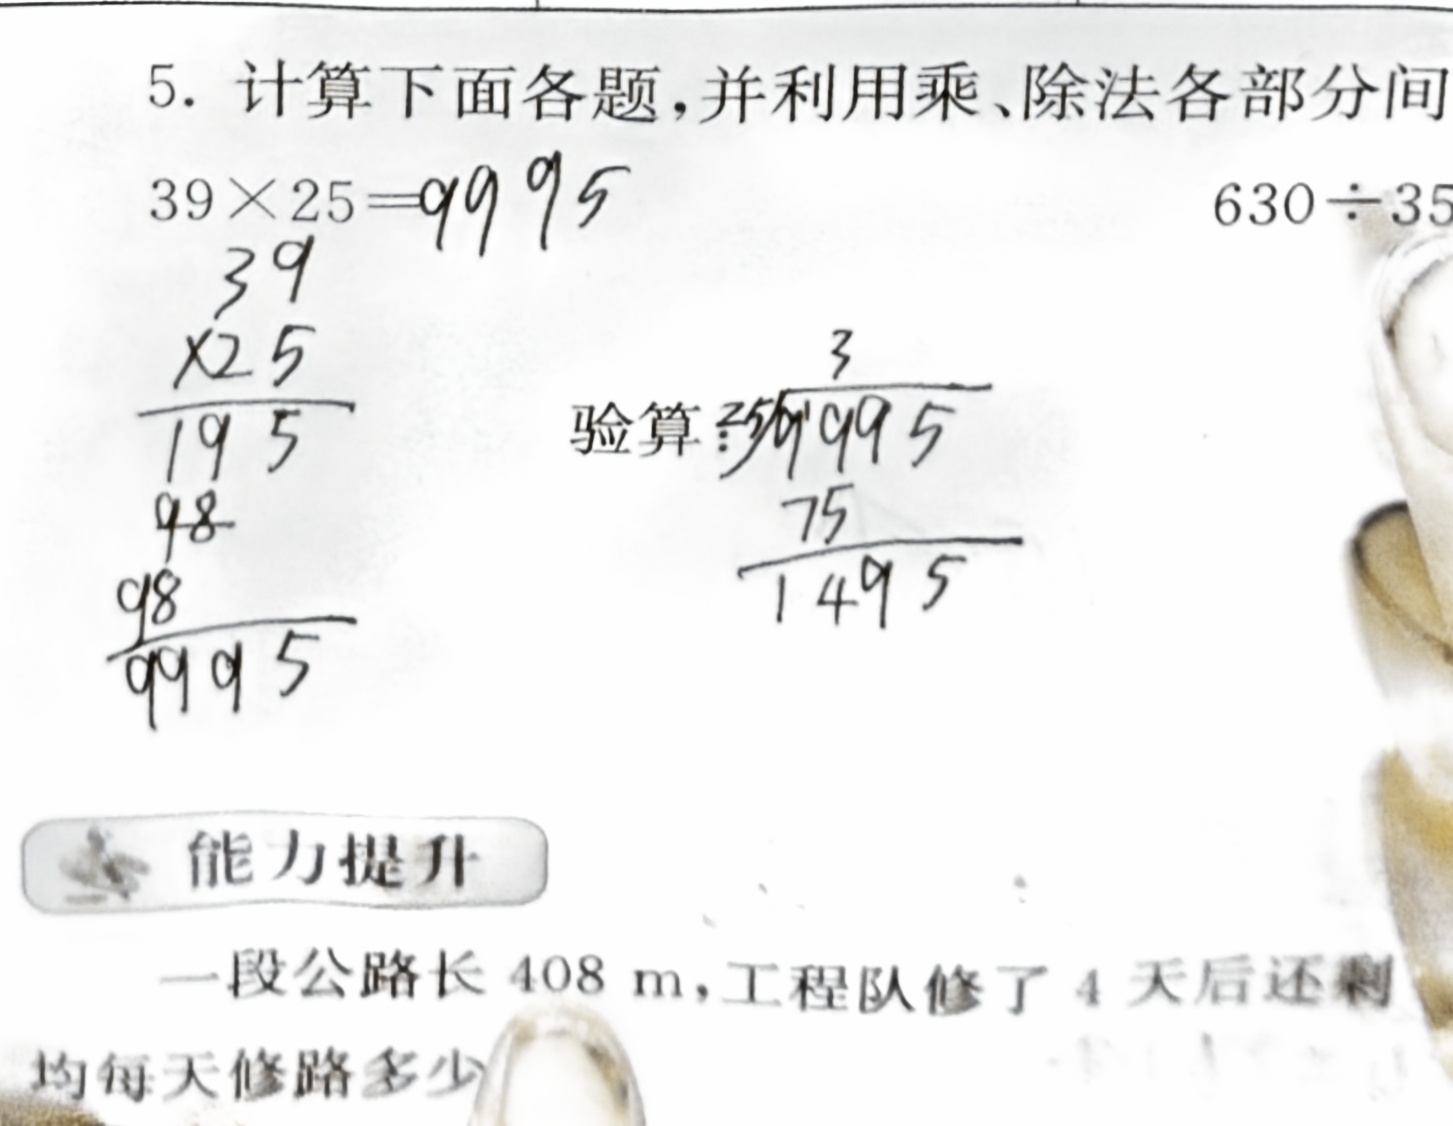 5. 计算下面各题,并利用乘、除法各部分间
39×25=9995
630÷35
39
×25
195
98
98
9995
验算:
3
25 9995
75
1495
能力提升
一段公路长 408 m,工程队修了 4 天后还剩
均每天修路多少